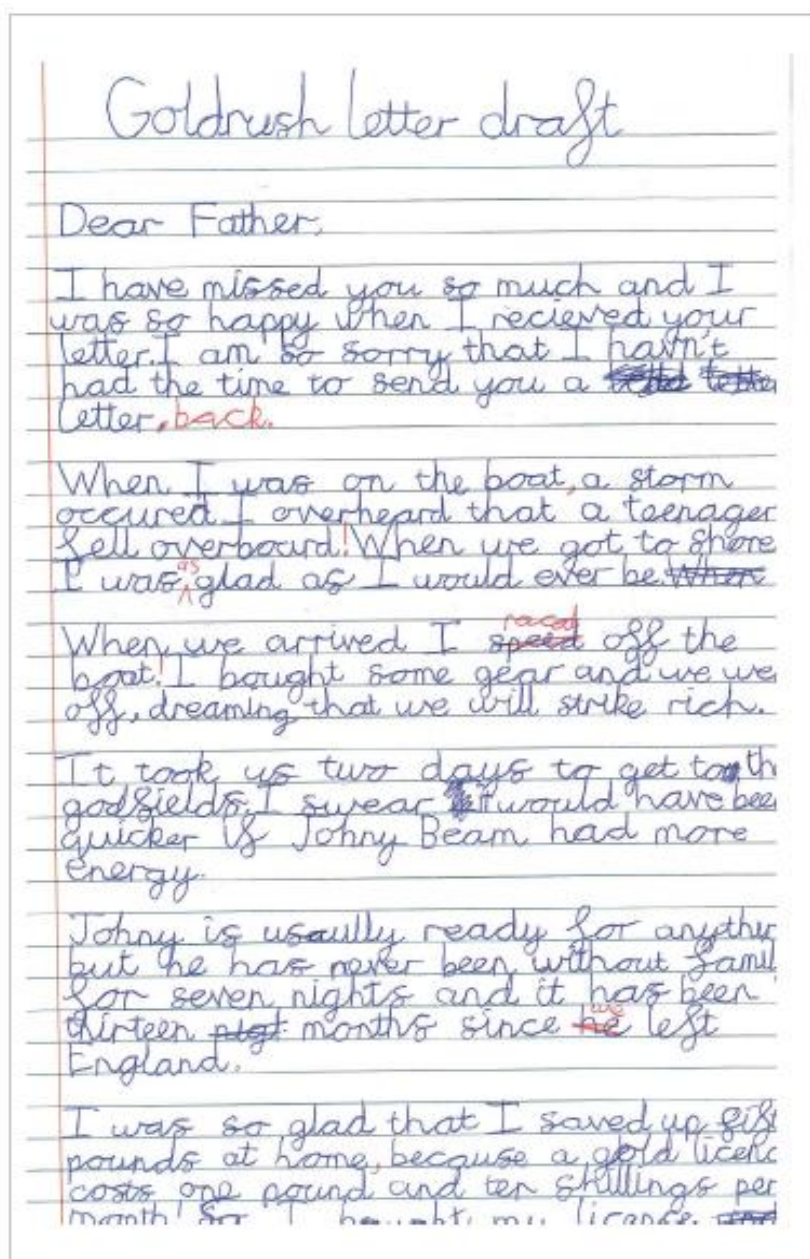 Goldrush letter draft
Dear Father,
I have missed you so much and I
was so happy when I recieved your
letter. I am so sorry that I havn't
had the time to send you a
letter, back.
When I was on the boat, a storm
occured. I overheard that a teenager
fell overboard! When we got to shore
I was as glad as I would ever be. When
When we arrived I speed raced off the
boat! I bought some gear and we we
off, dreaming that we will strike rich.
It took us two days to get to th
godfields. I swear it would have bee
quicker if Johny Beam had more
energy.
Johny is usaully ready for anythin
but he has never been without famil
for seven nights and it has been
thirteen nigt months since he we left
England.
I was so glad that I saved up fift
pounds at home, because a gold licenc
costs one pound and ten shillings per
month! So I bought my licence and